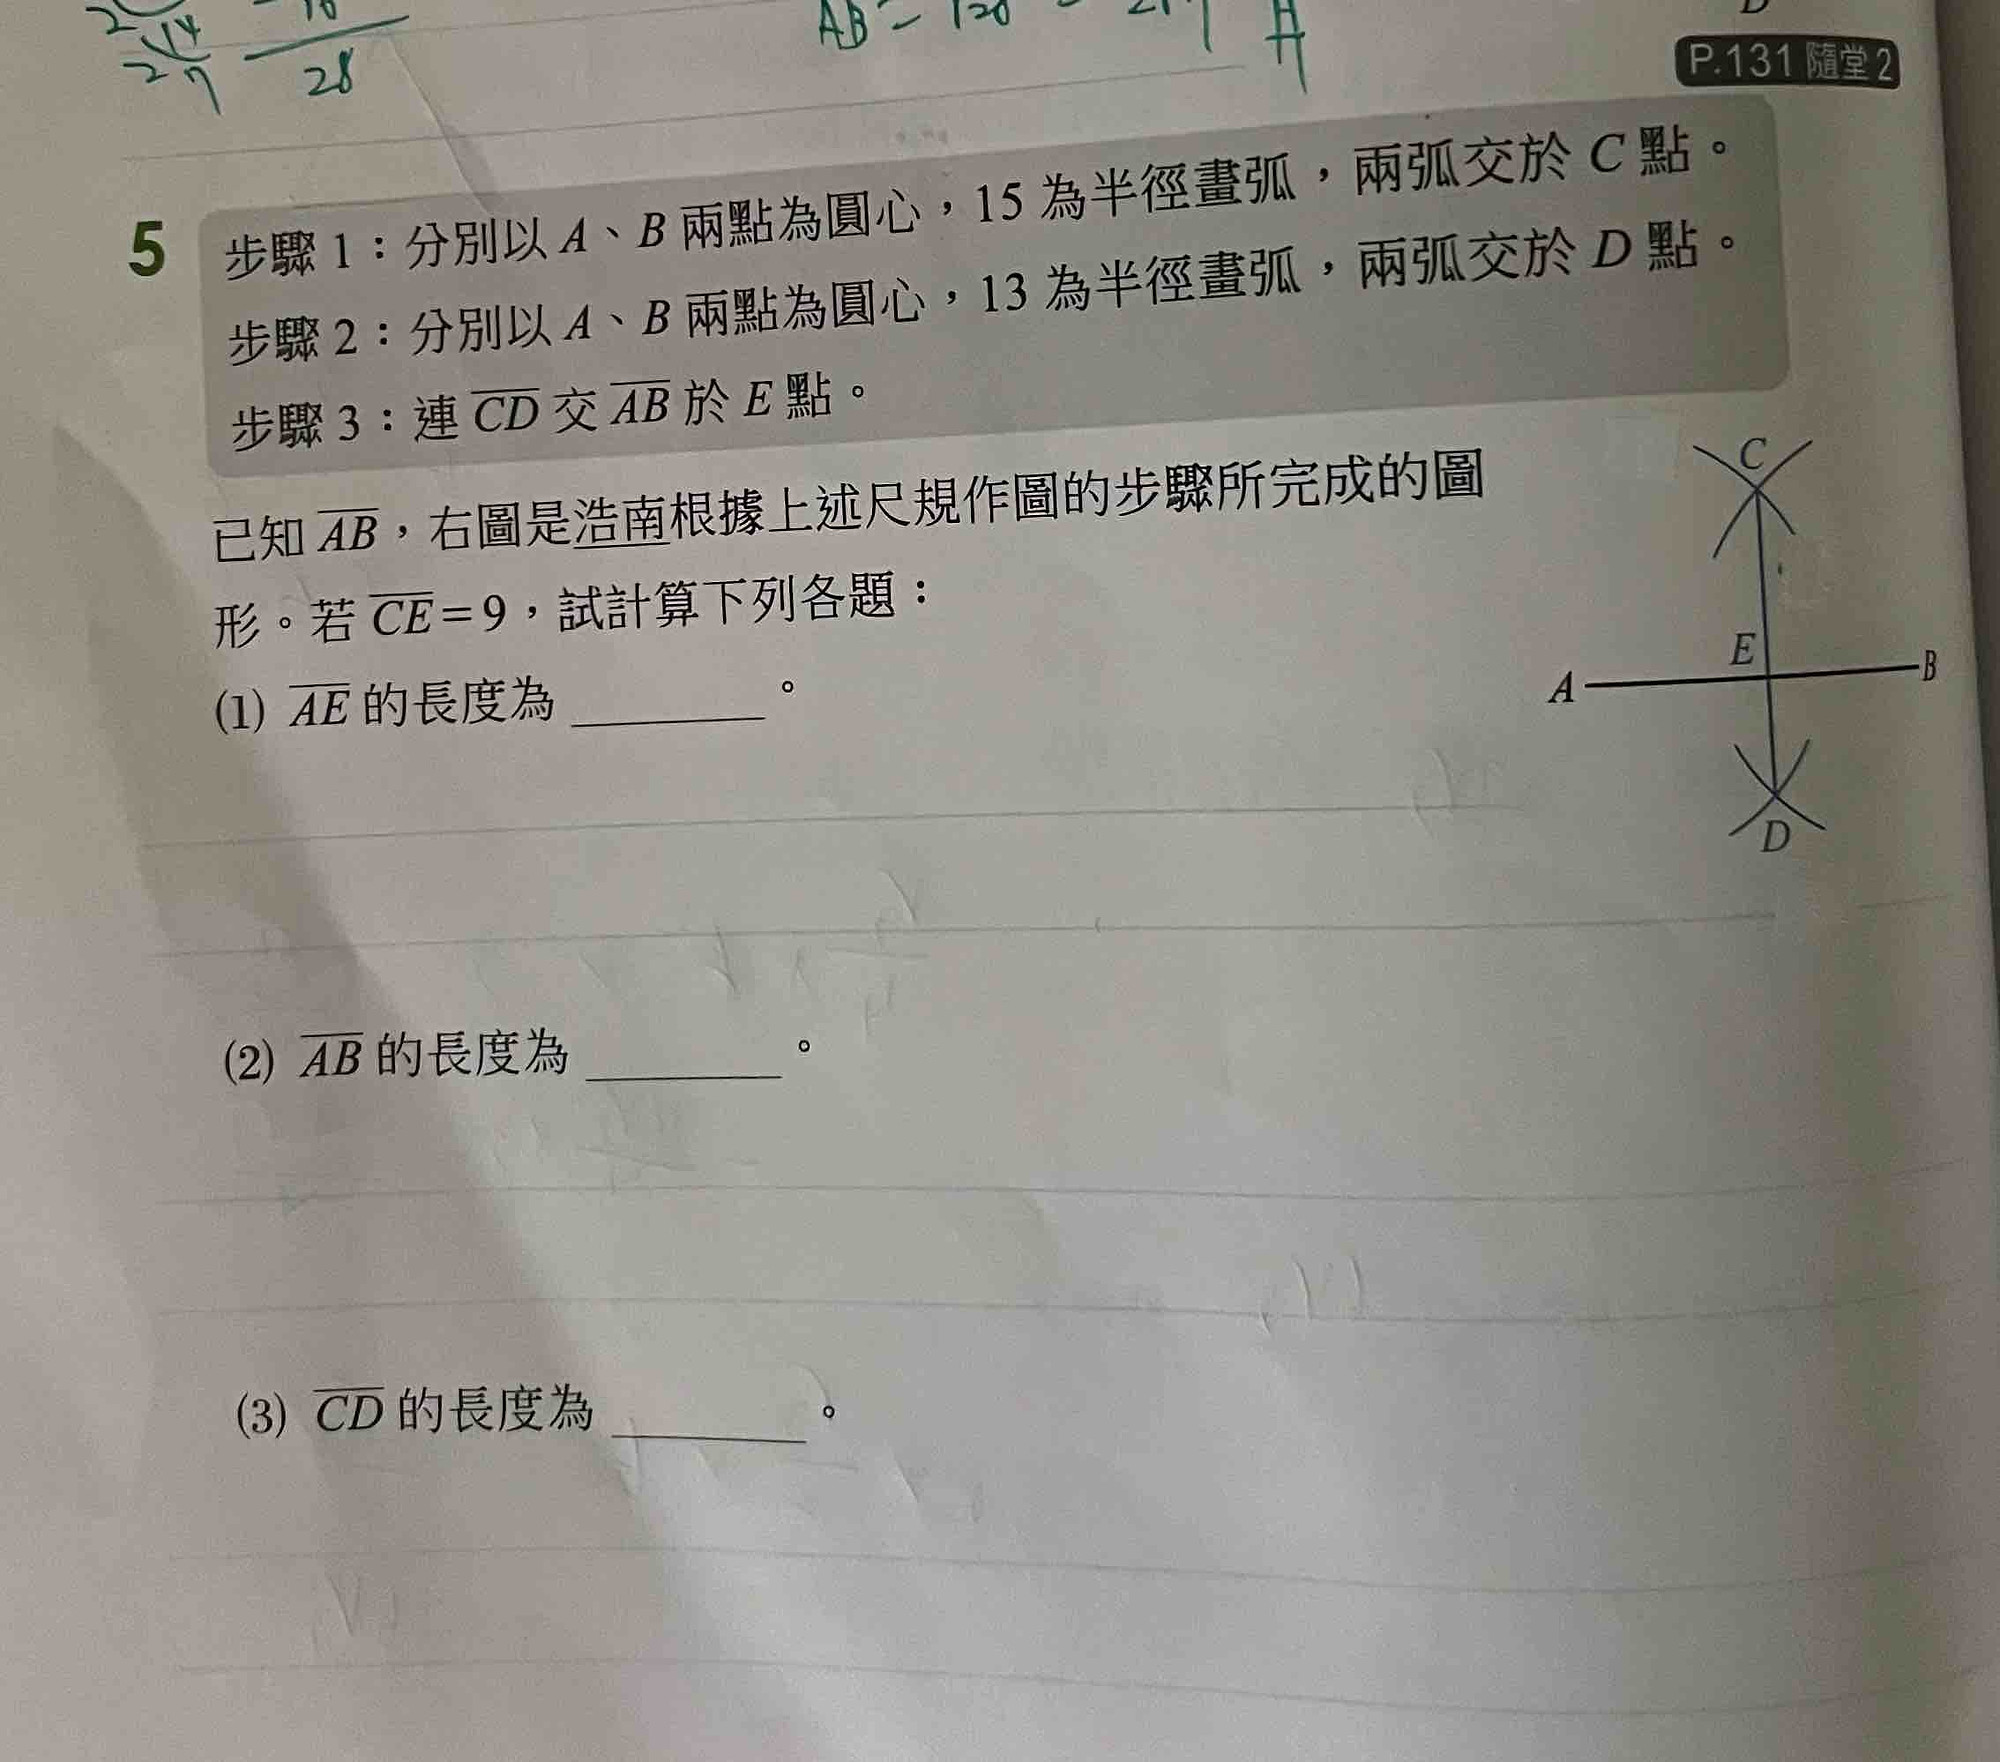 28
P.131 隨堂2
5 步驟1:分別以A、B兩點為圓心,15為半徑畫弧,兩弧交於C點。
步驟2:分別以A、B兩點為圓心,13為半徑畫弧,兩弧交於D點。
步驟3:連CD交AB於E點。
已知AB,右圖是浩南根據上述尺規作圖的步驟所完成的圖
形。若CE=9,試計算下列各題:
C
E
A
B
D
(1) AE的長度為______。
(2) AB的長度為______。
(3) CD的長度為______。